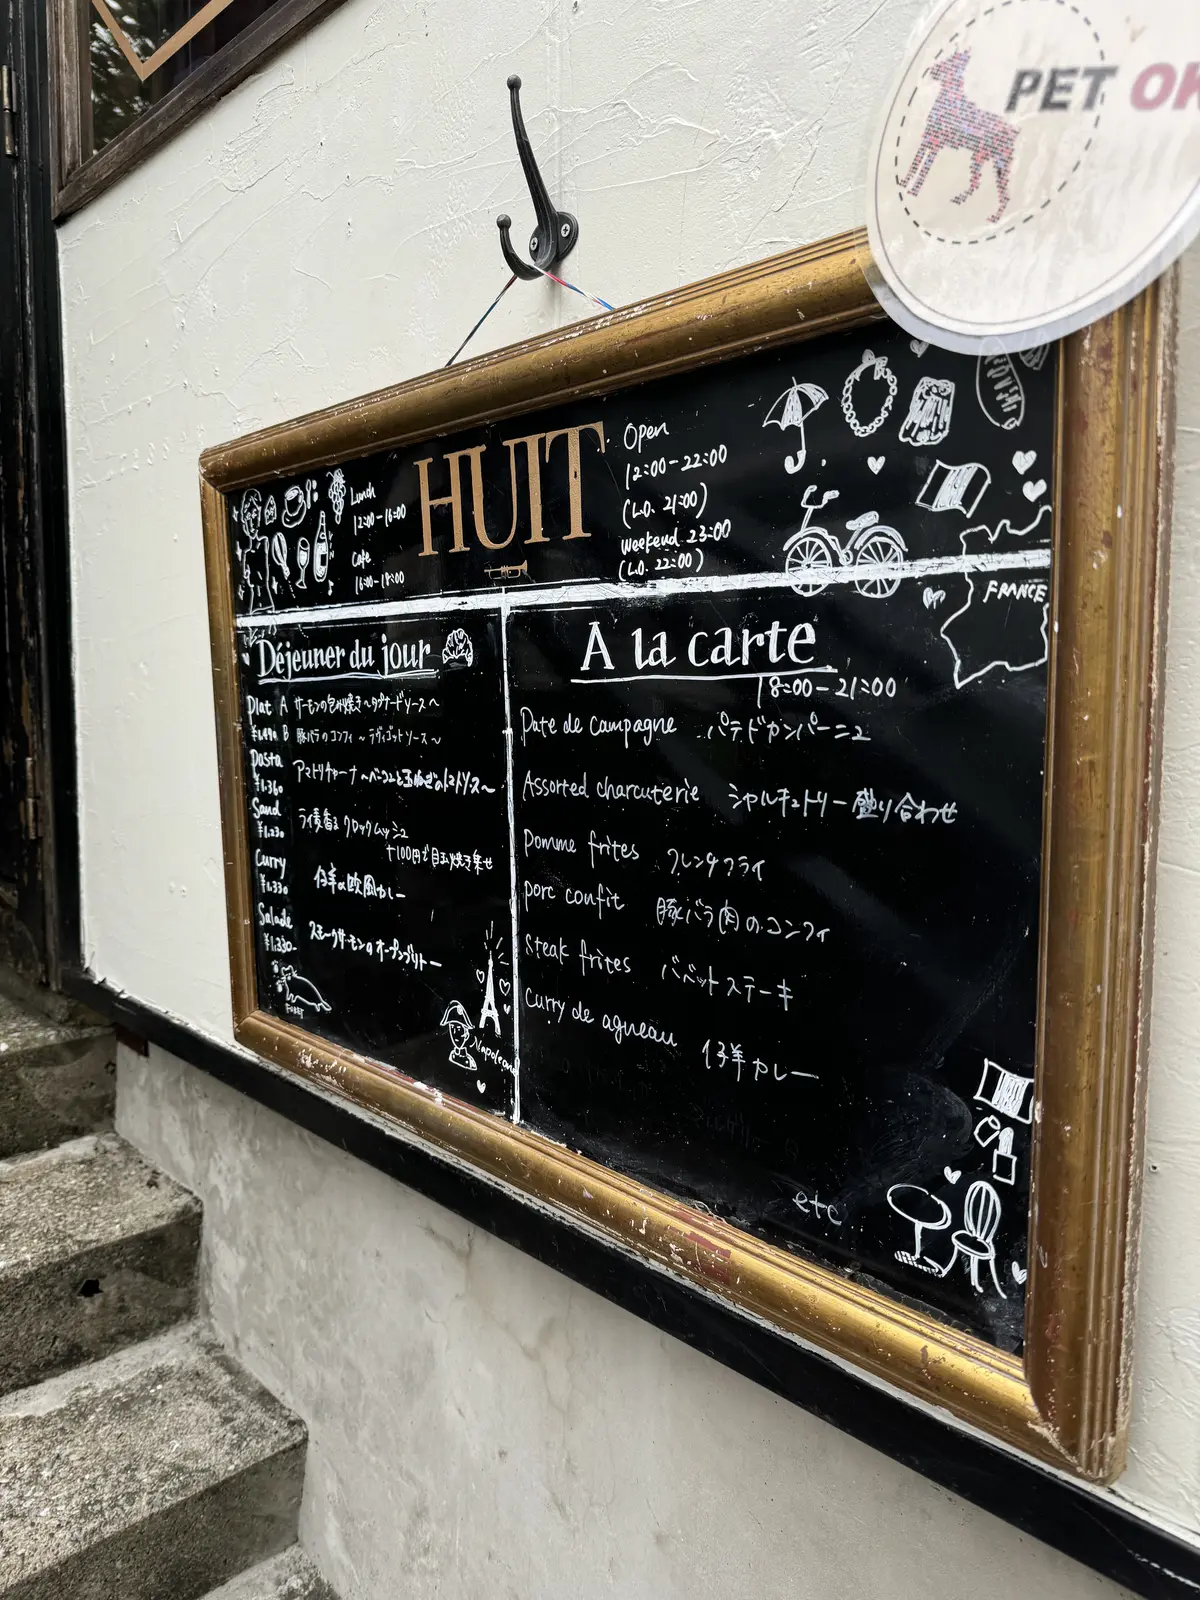 PET OK
HUIT
Lunch
12:00-16:00
Cafe
16:00-18:00
Open
12:00-22:00
(L.O. 21:00)
Weekend 23:00
(L.O. 22:00)
FRANCE
Déjeuner du jour
Plat A サーモンの包み焼き〜タプナードソース〜
B 豚バラのコンフィ〜ラヴィゴットソース〜
Pasta アマトリチャーナ〜ベーコンと玉ねぎのトマトソース〜
¥1.360
Sand ライ麦香る クロックムッシュ
¥1.230 +100円で目玉焼き乗せ
Curry 仔羊の欧風カレー
¥1.330
Salade スモークサーモンのオープンブリトー
¥1.330-
Napoleon
A la carte
18:00-21:00
Pate de campagne パテドカンパーニュ
Assorted charcuterie シャルキュトリー盛り合わせ
Pomme frites フレンチフライ
porc confit 豚バラ肉のコンフィ
Steak frites バベットステーキ
Curry de agneau 仔羊カレー
etc